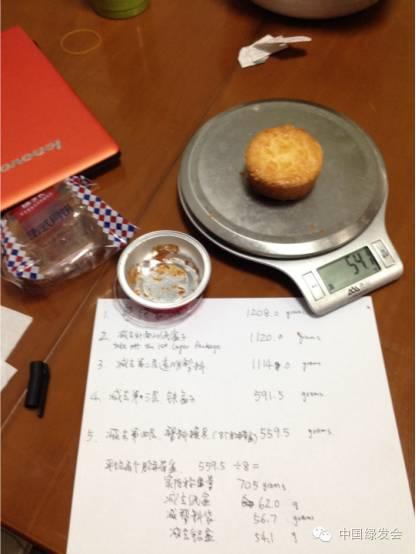 lenovo
法式月饼
54.1
1. 1208.0 grams
2. 减去外面的纸盒子 1120.0 grams
take off the 1st layer Package
3. 减去第二层透明塑料 1114.0 grams
4. 减去第三层 铁盒子 591.5 grams
5. 减去第四层 塑料模具 559.5 grams
平均每个月饼重量 559.5 ÷8=
实际称重量 70.5 grams
减去纸盒 62.0 g
减塑料袋 56.7 g
减去铝盒 54.1 g
中国绿发会